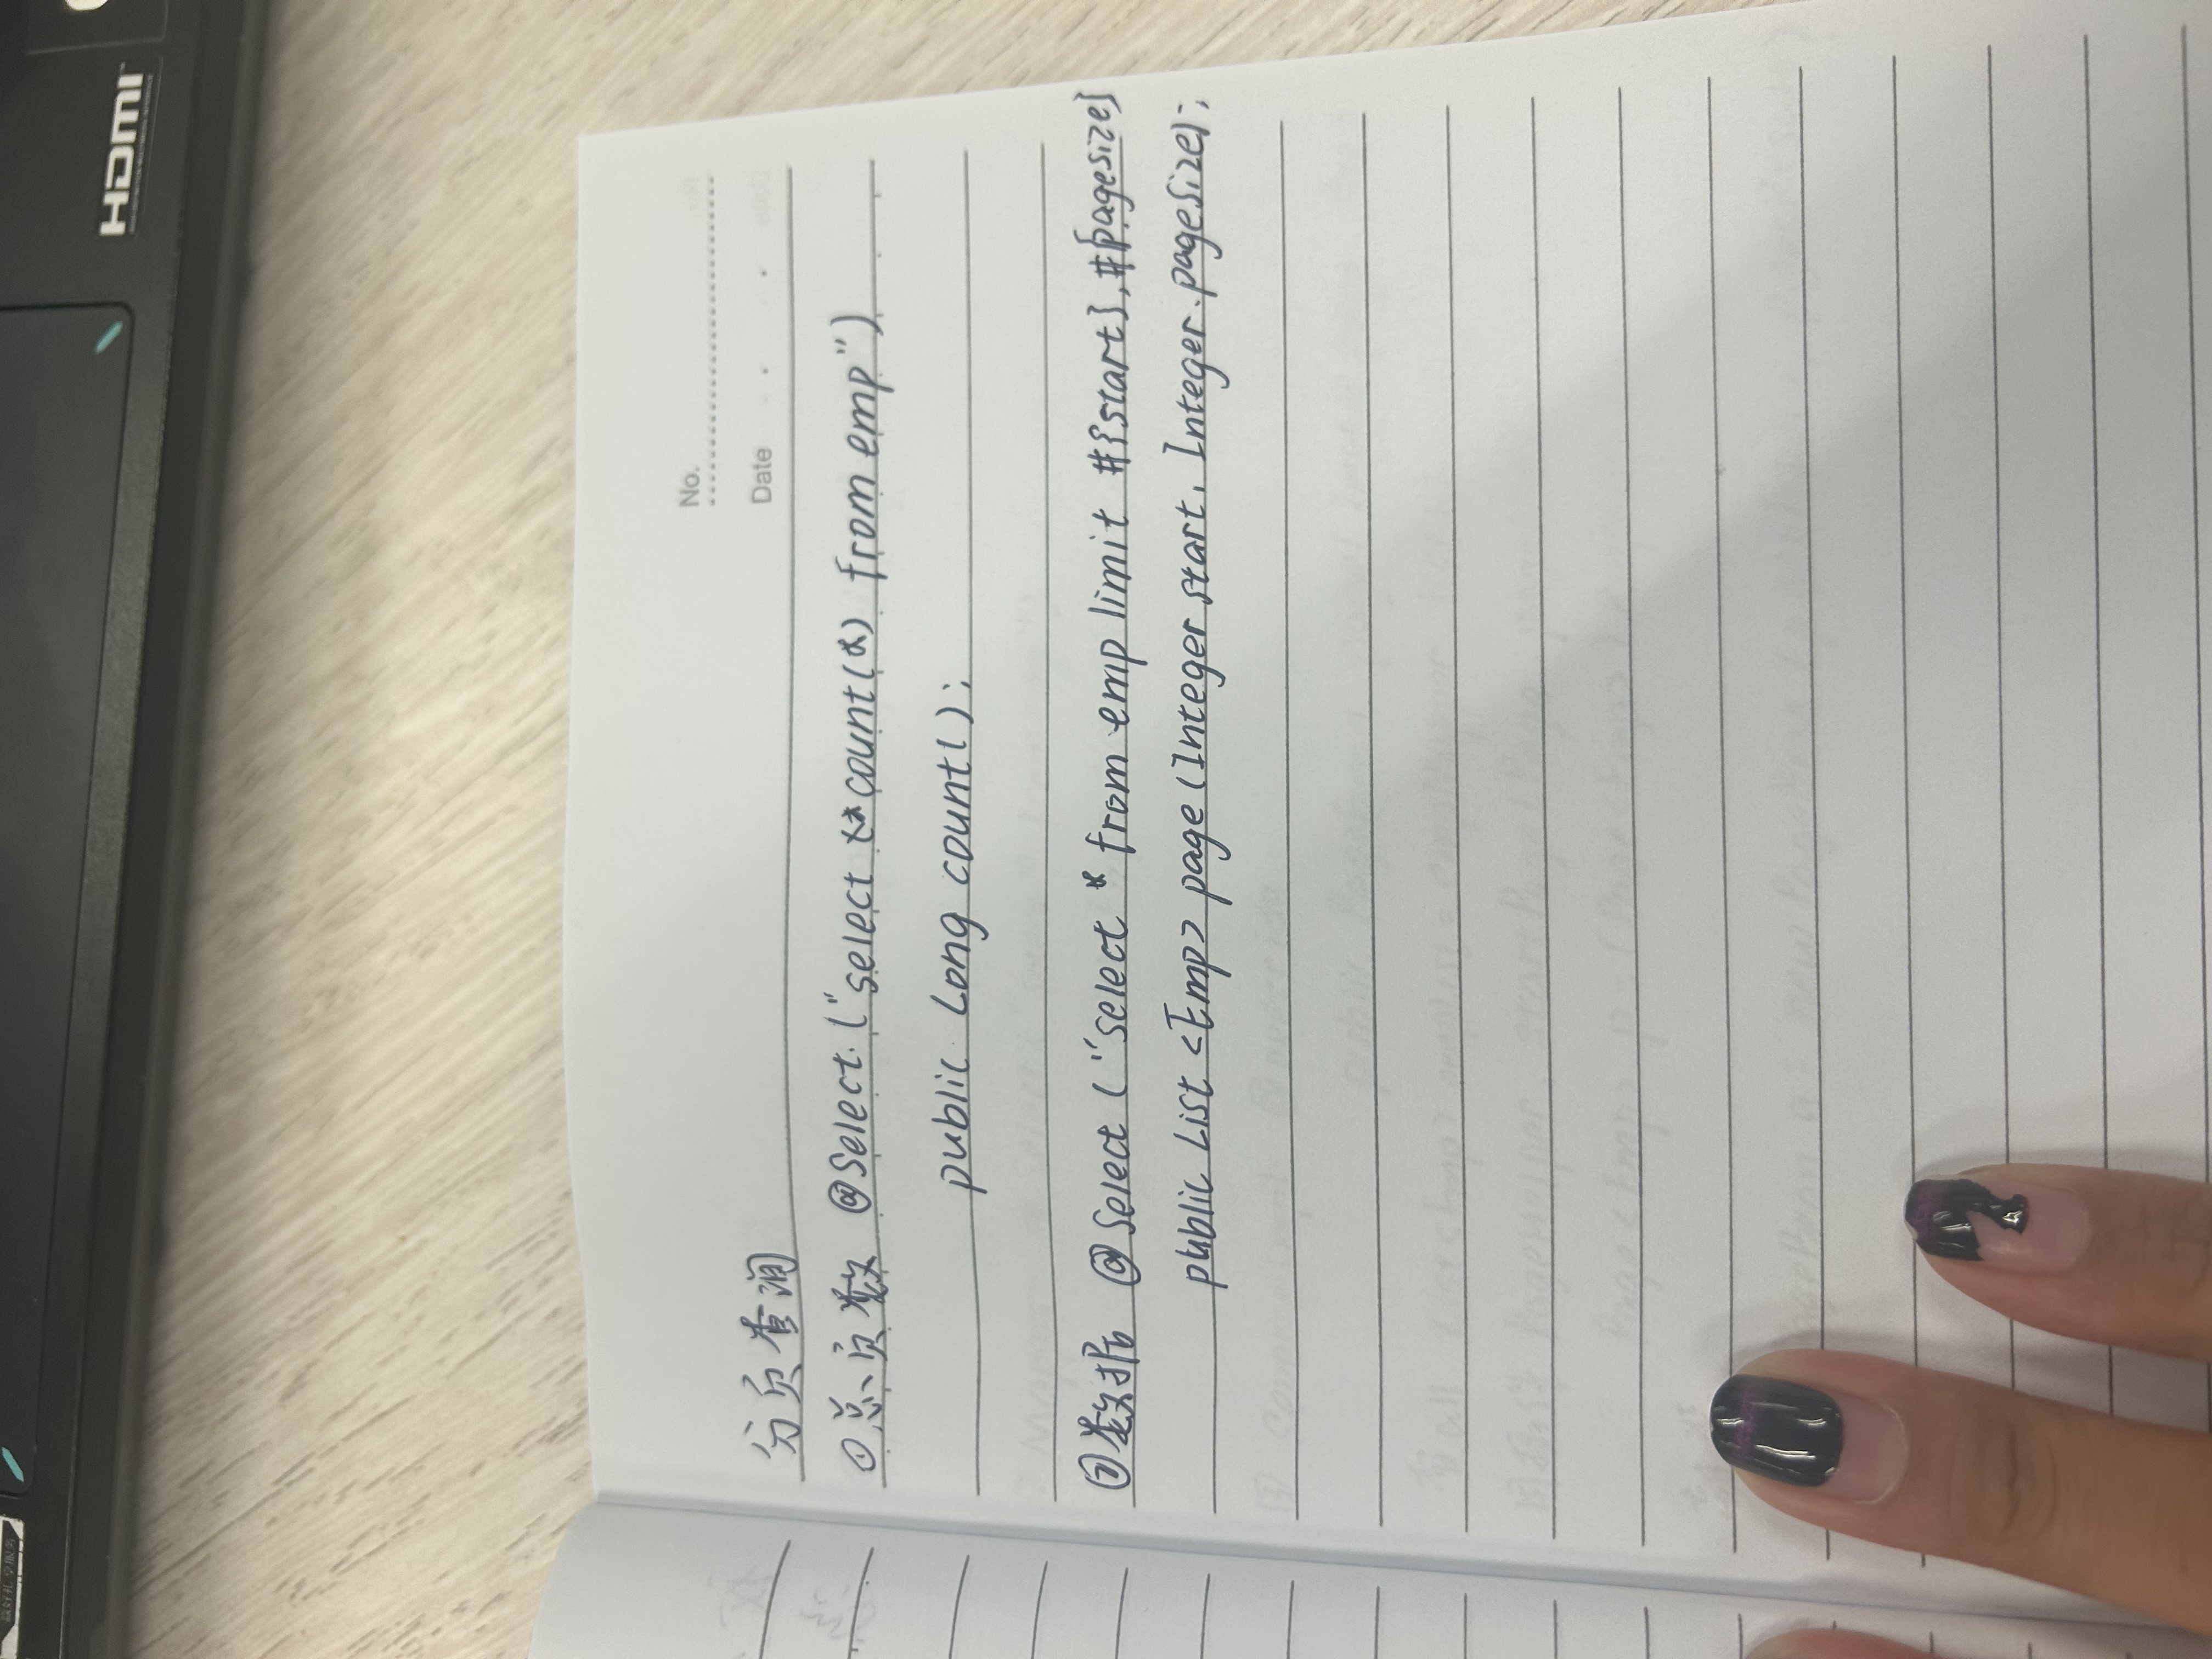 HDMI
No.
Date
分页查询
①总页数 @Select("select count(*) from emp")
public Long count();
②数据 @Select("select * from emp limit #{start},#{pagesize}
public List<Emp> page(Integer start, Integer pageSize);